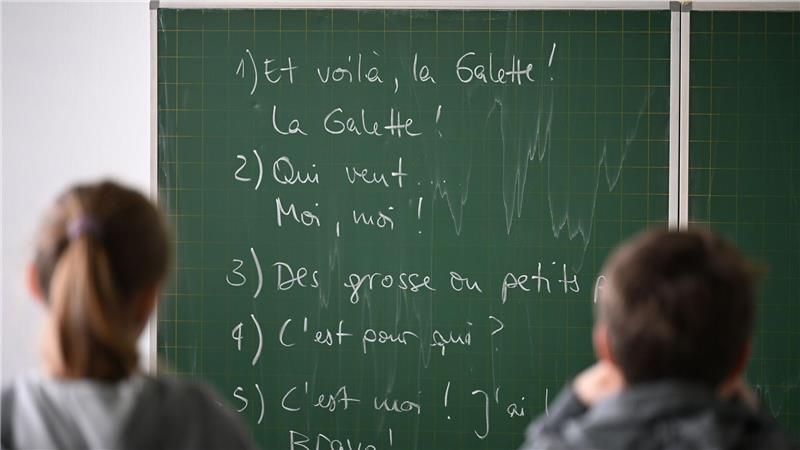 1) Et voilà, la Galette!
La Galette!
2) Qui veut...
Moi, moi!
3) Des grosse ou petits
4) C'est pour qui?
5) C'est moi! J'ai
Bravo!